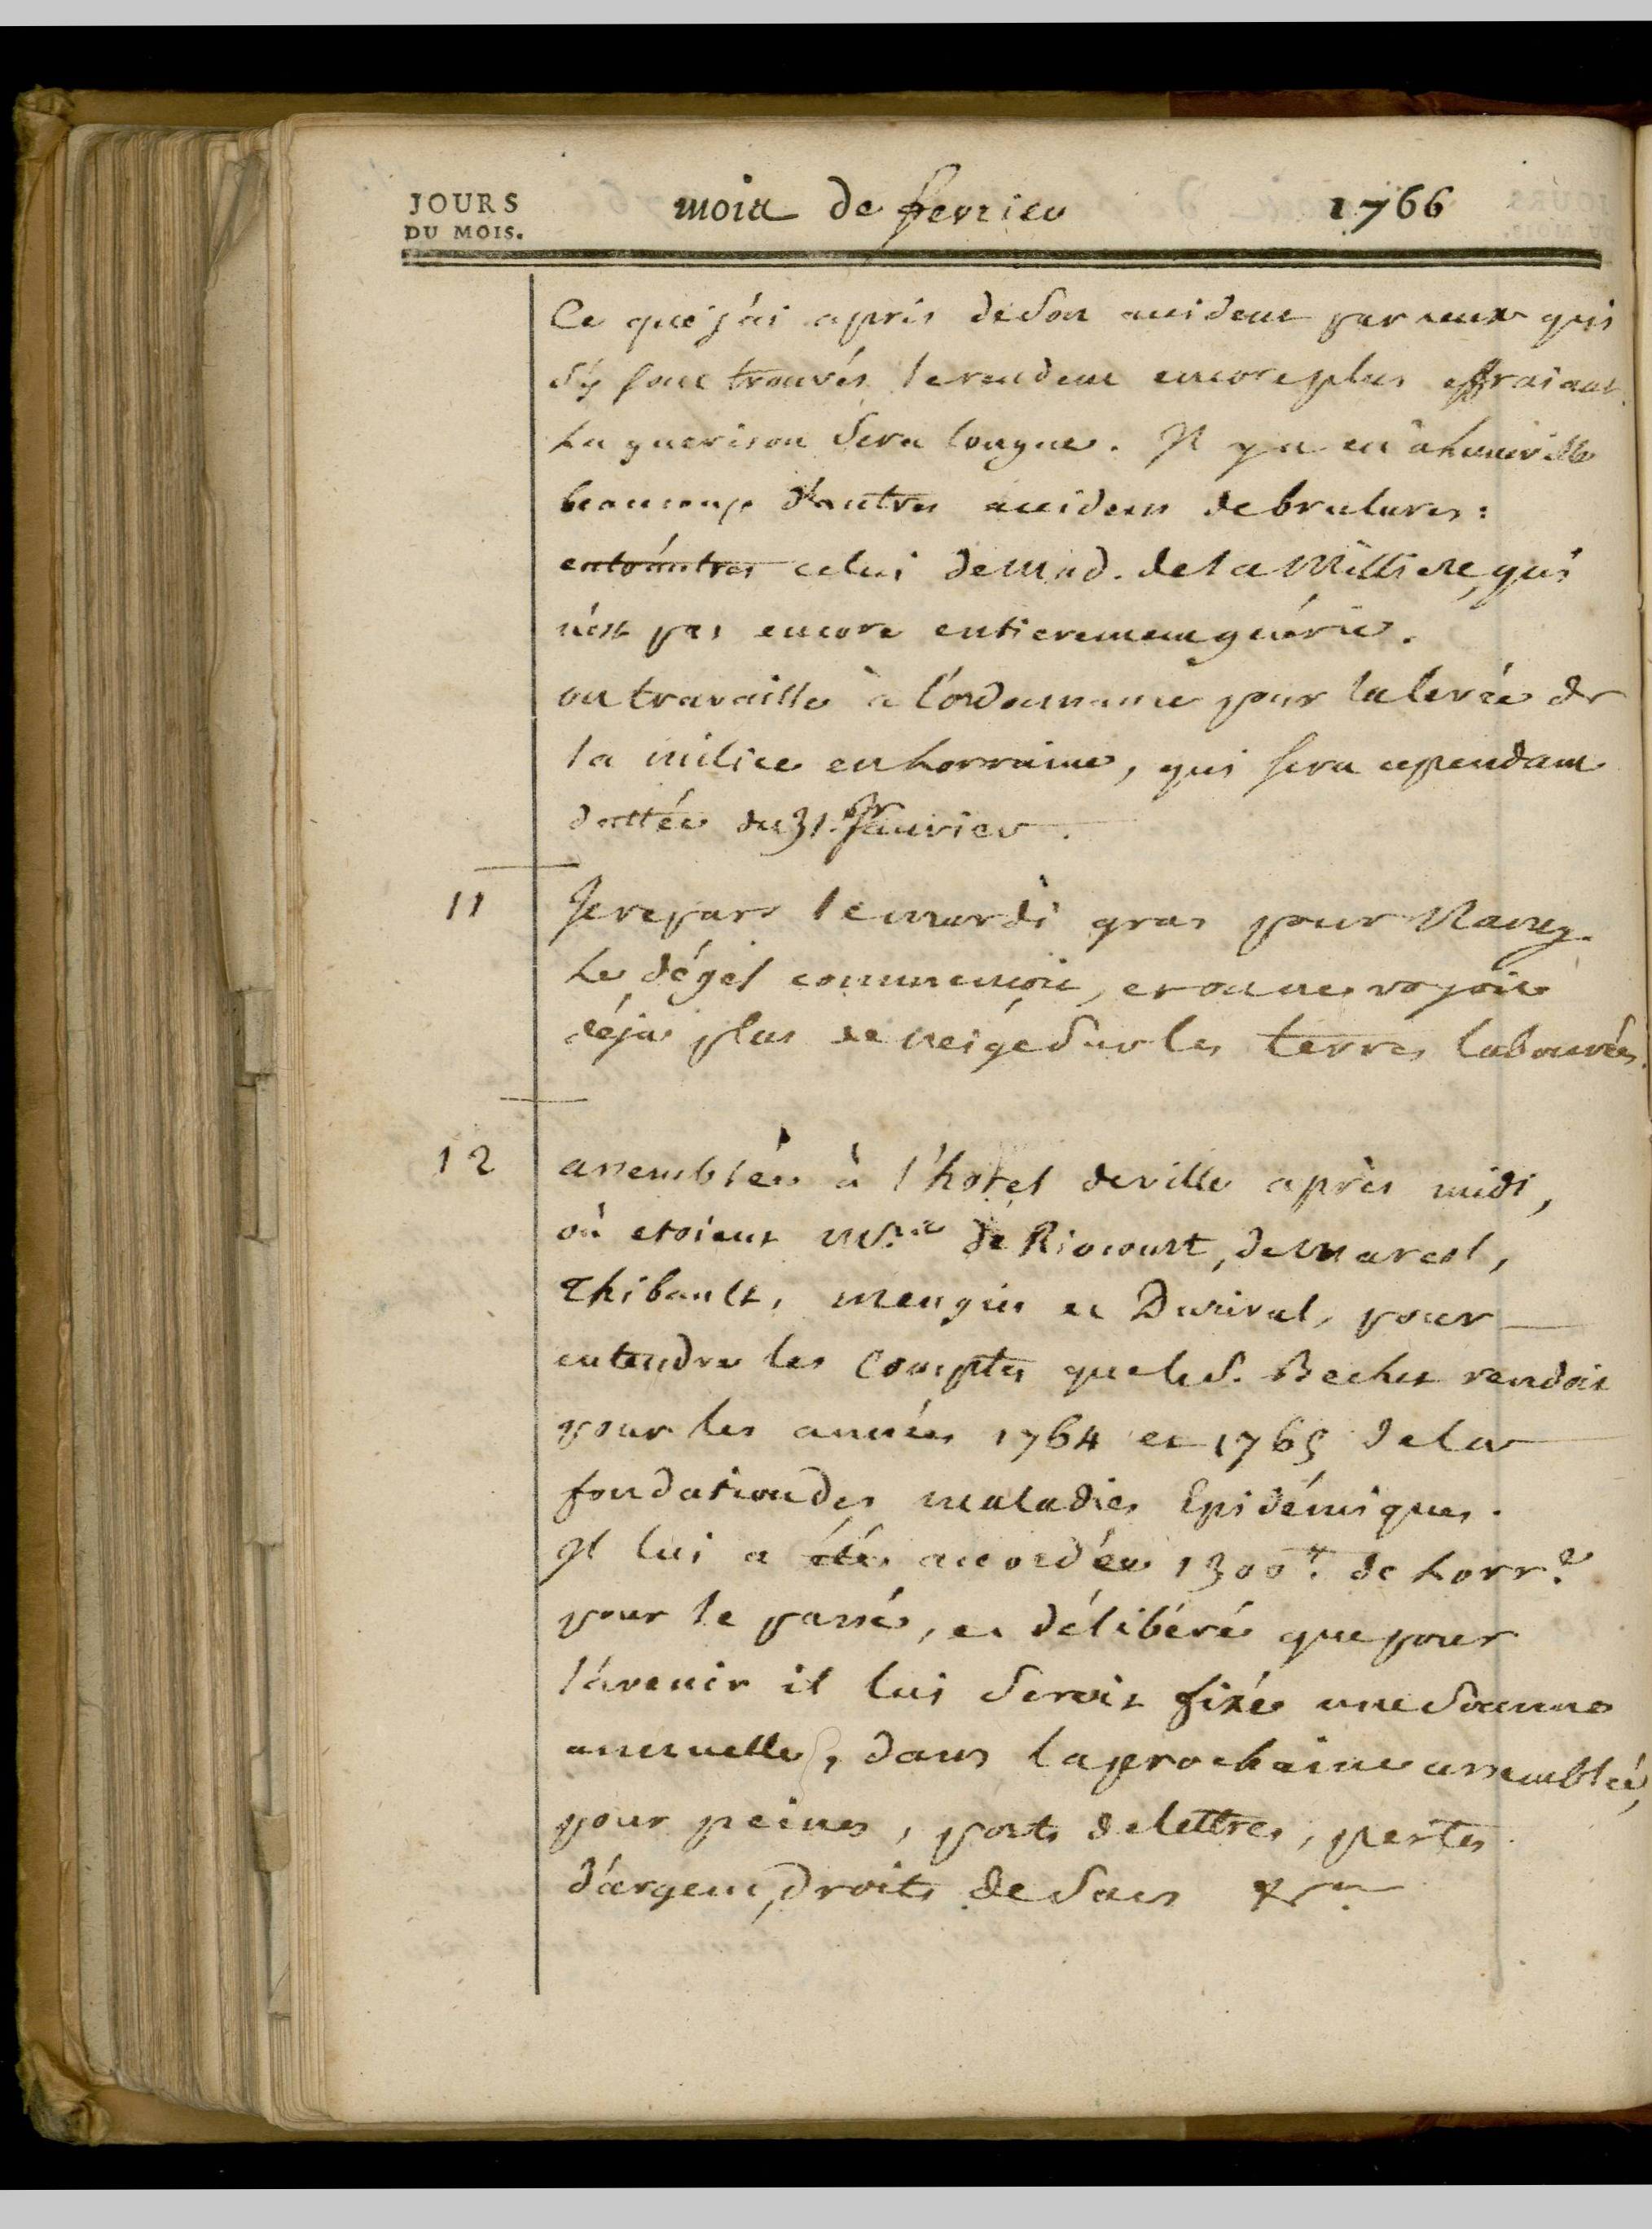 JOURS
DU MOIS.
mois de fevrier 1766
Ce que j'ai apris de son accident par ceux qui
s'y sont trouvés le rendent encore plus effraiant.
La guerison sera longue. Il y a eu à Luneville
beaucoup d'autres accidens de brulures:
entr'autres celui de Mad. de la Milliere, qui
n'est pas encore entierement guérie.
on travaille à l'ordonnance pour la levée de
la milice en Lorraine, qui sera cependant
dattée du 31. Janvier.
11 Je repars le mardi gras pour Nancy.
Le dégel commençoit, et on ne voyoit
déja plus de neige sur les terres labourées.
12 assemblée à l'hotel de ville après midi,
où etoient Mrs. de Riocourt, de Marcol,
Thibault, Mengin et Durival, pour
entendre les Comptes que le S. Bechet rendoit
pour les années 1764 et 1765 de la
fondation des maladies Epidémiques.
Il lui a été accordée 1300tt. de Lorr.e
pour le passé, et délibéré que pour
l'avenir il lui seroit fixée une somme
annuelle, dans la prochaine assemblée,
pour peines, ports de lettres, pertes
d'argent, droits de sacs &ca.